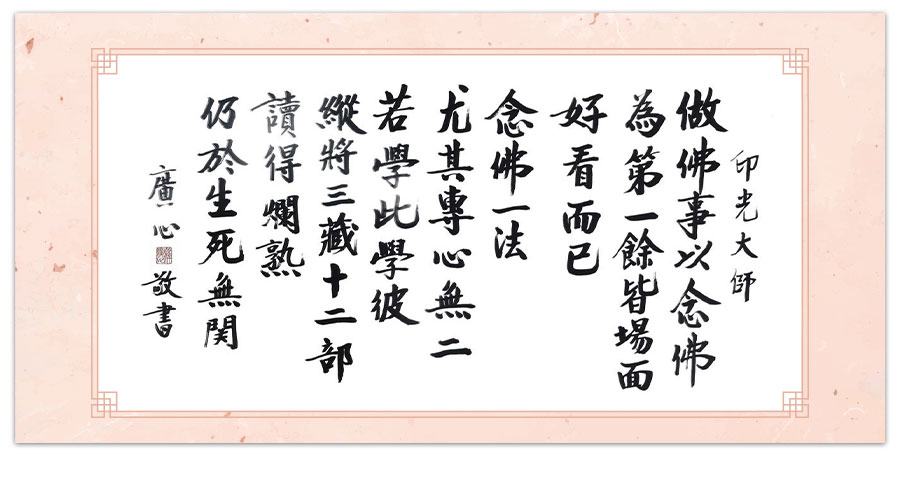 印光大師
做佛事以念佛
為第一餘皆場面
好看而已
念佛一法
尤其專心無二
若學此學彼
縱將三藏十二部
讀得爛熟
仍於生死無関
廣心敬書